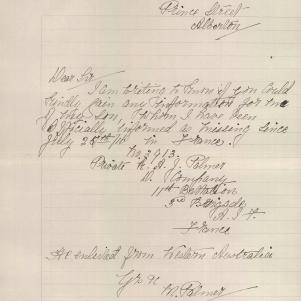 Prince Street
Alberton
Dear Sir
I am writing to know if you could
kindly gain any information for me
of my Son, whom I have been
Officially informed as missing since
July 25th/16 in France.
No. 2913.
Private H. J. Palmer
D. Company
11th Battalion
3rd Brigade
A. I. F.
France
He enlisted from Western Australia
Yrs
M. Palmer